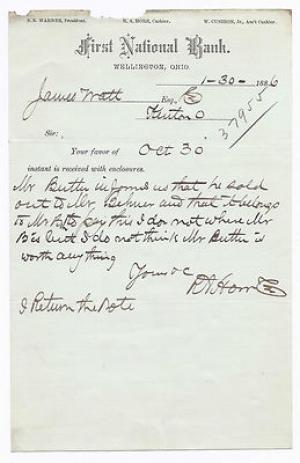 S.S. WARNER, President. R. A. HORR, Cashier. W. CUSHION, Jr., Ass't Cashier.
First National Bank.
WELLINGTON, OHIO.
1-30- 1886
James Watt Esq.
Kenton O
37955
Sir:
Your favor of Oct 30
instant is received with enclosures.
Mr Butler informs us that he sold
out to Mr. and that it belongs
to Mr to pay this I do not where Mr
B is but I do not think Mr Butler is
worth anything
Yours &c
R A Horr
I Return the Note